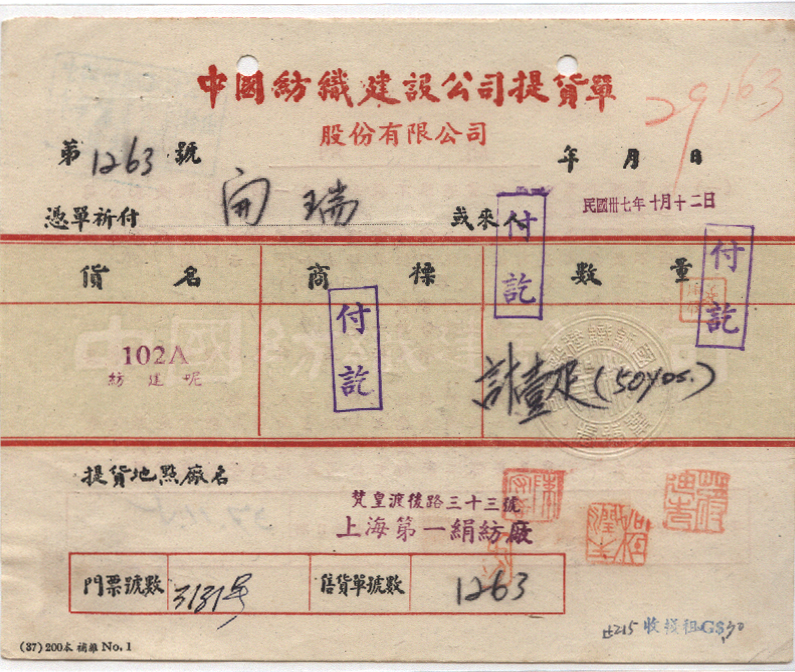 中國紡織建設公司提貨單
29163
股份有限公司
第1263號
年 月 日
民國卅七年十月十二日
憑單祈付 開瑞 或來人
付訖
付訖
付訖
貨名 商標 數量
102A
紡建呢
計壹疋(50yds.)
提貨地點廠名
梵皇渡後路三十三號
上海第一絹紡廠
門票號數 3131号 售貨單號數 1263
收棧租GS
(37) 200本 補雜 No. 1